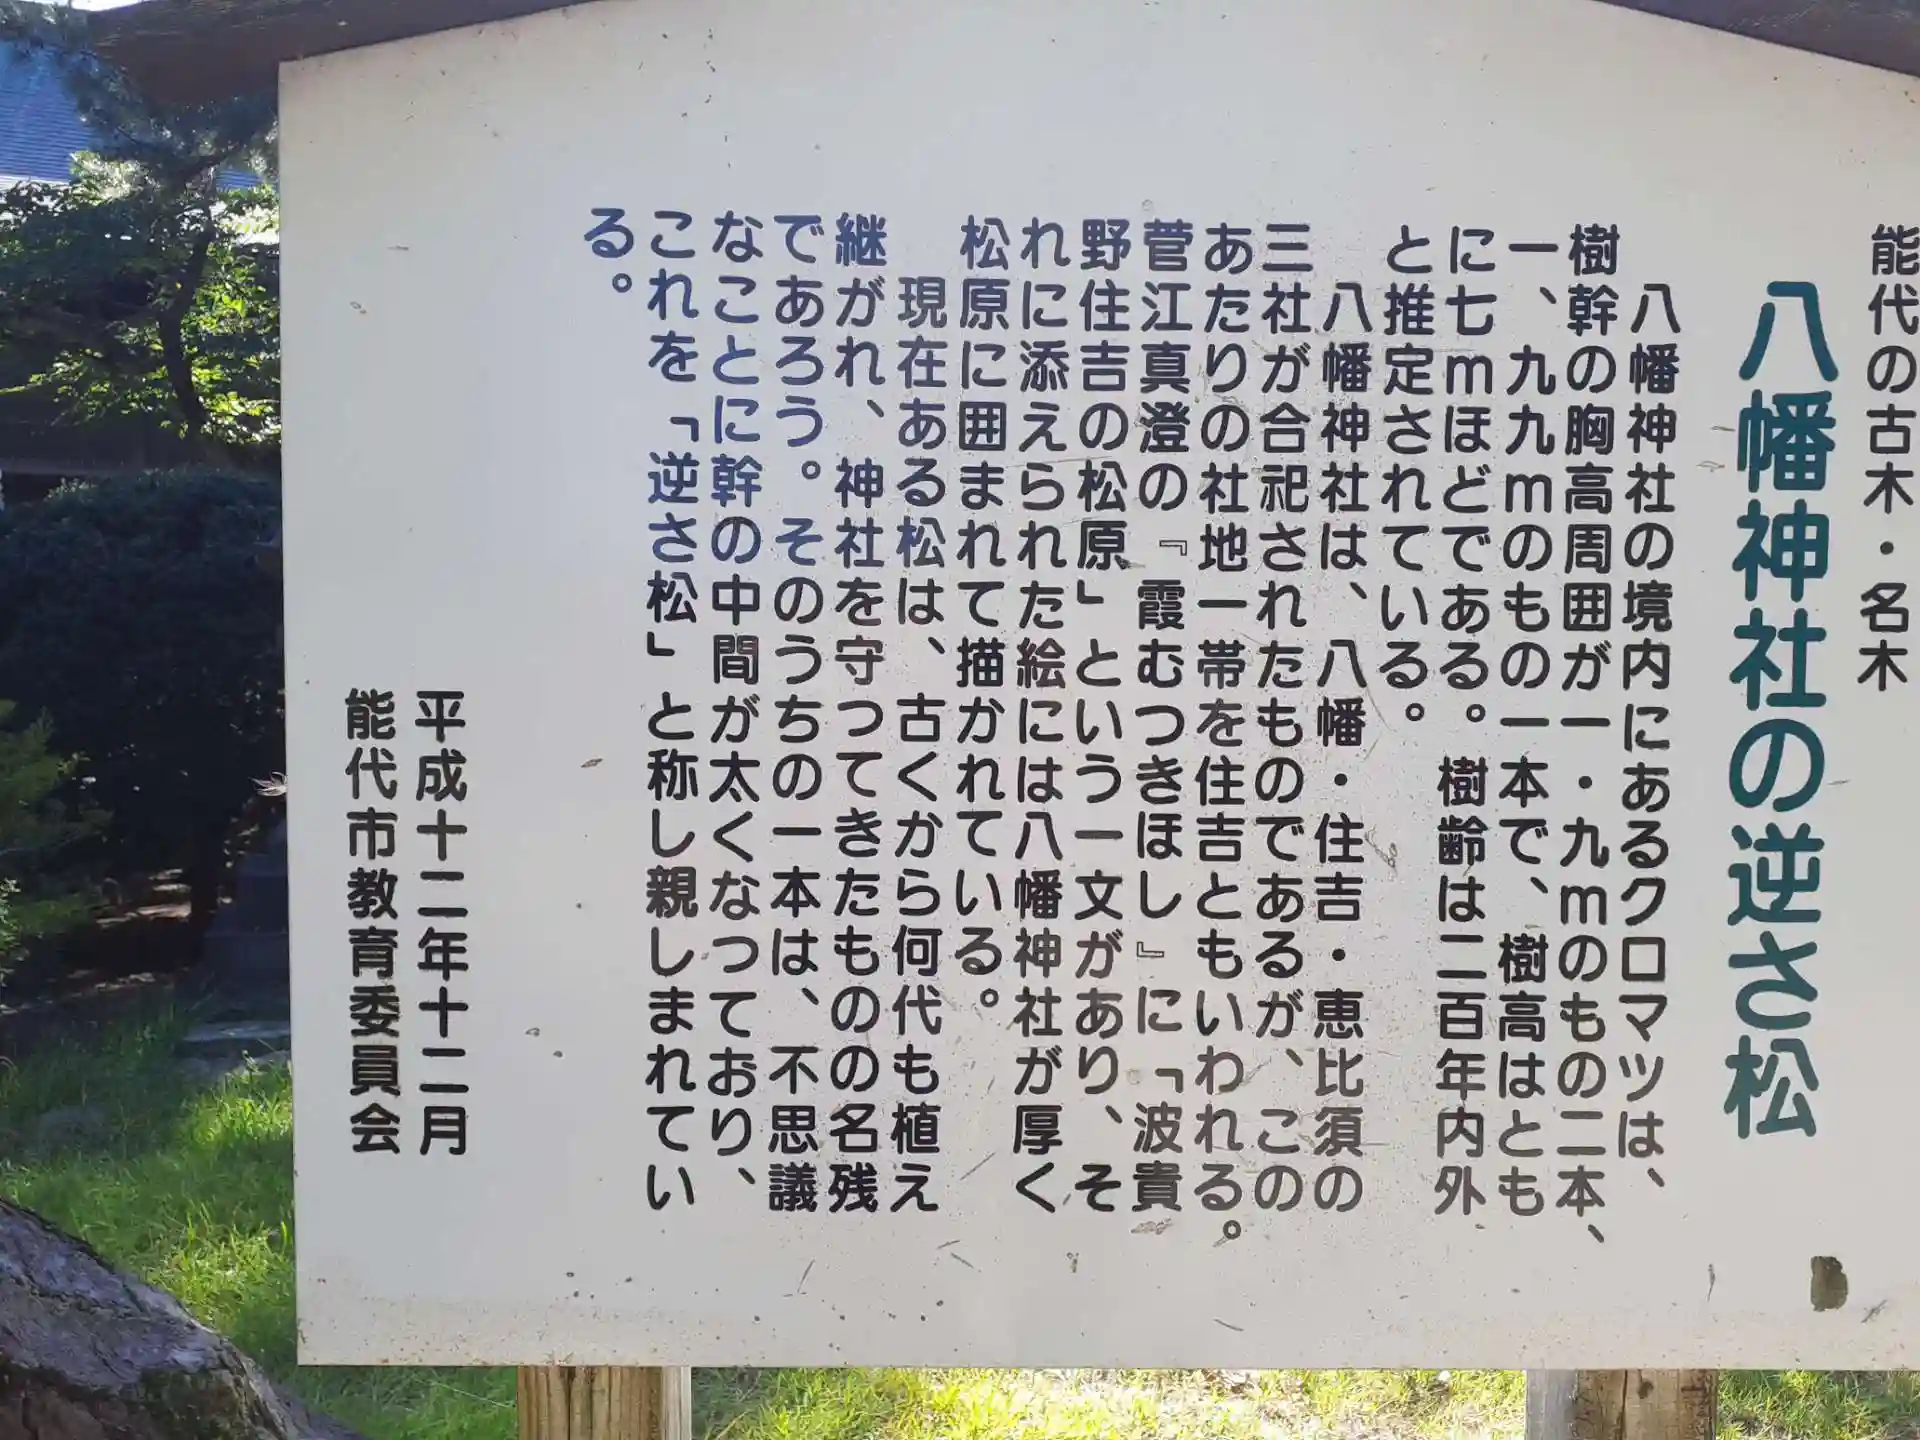 能代の古木・名木
八幡神社の逆さ松
八幡神社の境内にあるクロマツは、
樹幹の胸高周囲が一・九mのもの二本、
一、九九mのもの一本で、樹高はとも
に七mほどである。樹齢は二百年内外
と推定されている。
八幡神社は、八幡・住吉・恵比須の
三社が合祀されたものであるが、この
あたりの社地一帯を住吉ともいわれる。
菅江真澄の『霞むつきほし』に「波貴
野住吉の松原」という一文があり、そ
れに添えられた絵には八幡神社が厚く
松原に囲まれて描かれている。
現在ある松は、古くから何代も植え
継がれ、神社を守ってきたものの名残
であろう。そのうちの一本は、不思議
なことに幹の中間が太くなっており、
これを「逆さ松」と称し親しまれてい
る。
平成十二年十二月
能代市教育委員会